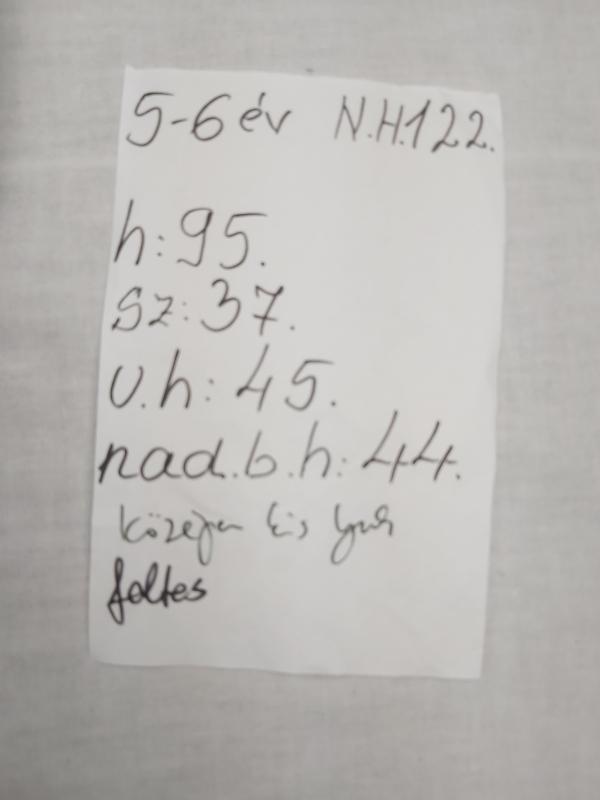 5-6 év N.H.122.
h: 95.
Sz: 37.
U.h: 45.
nad.b.h: 44.
közepén kis lyuk
foltos